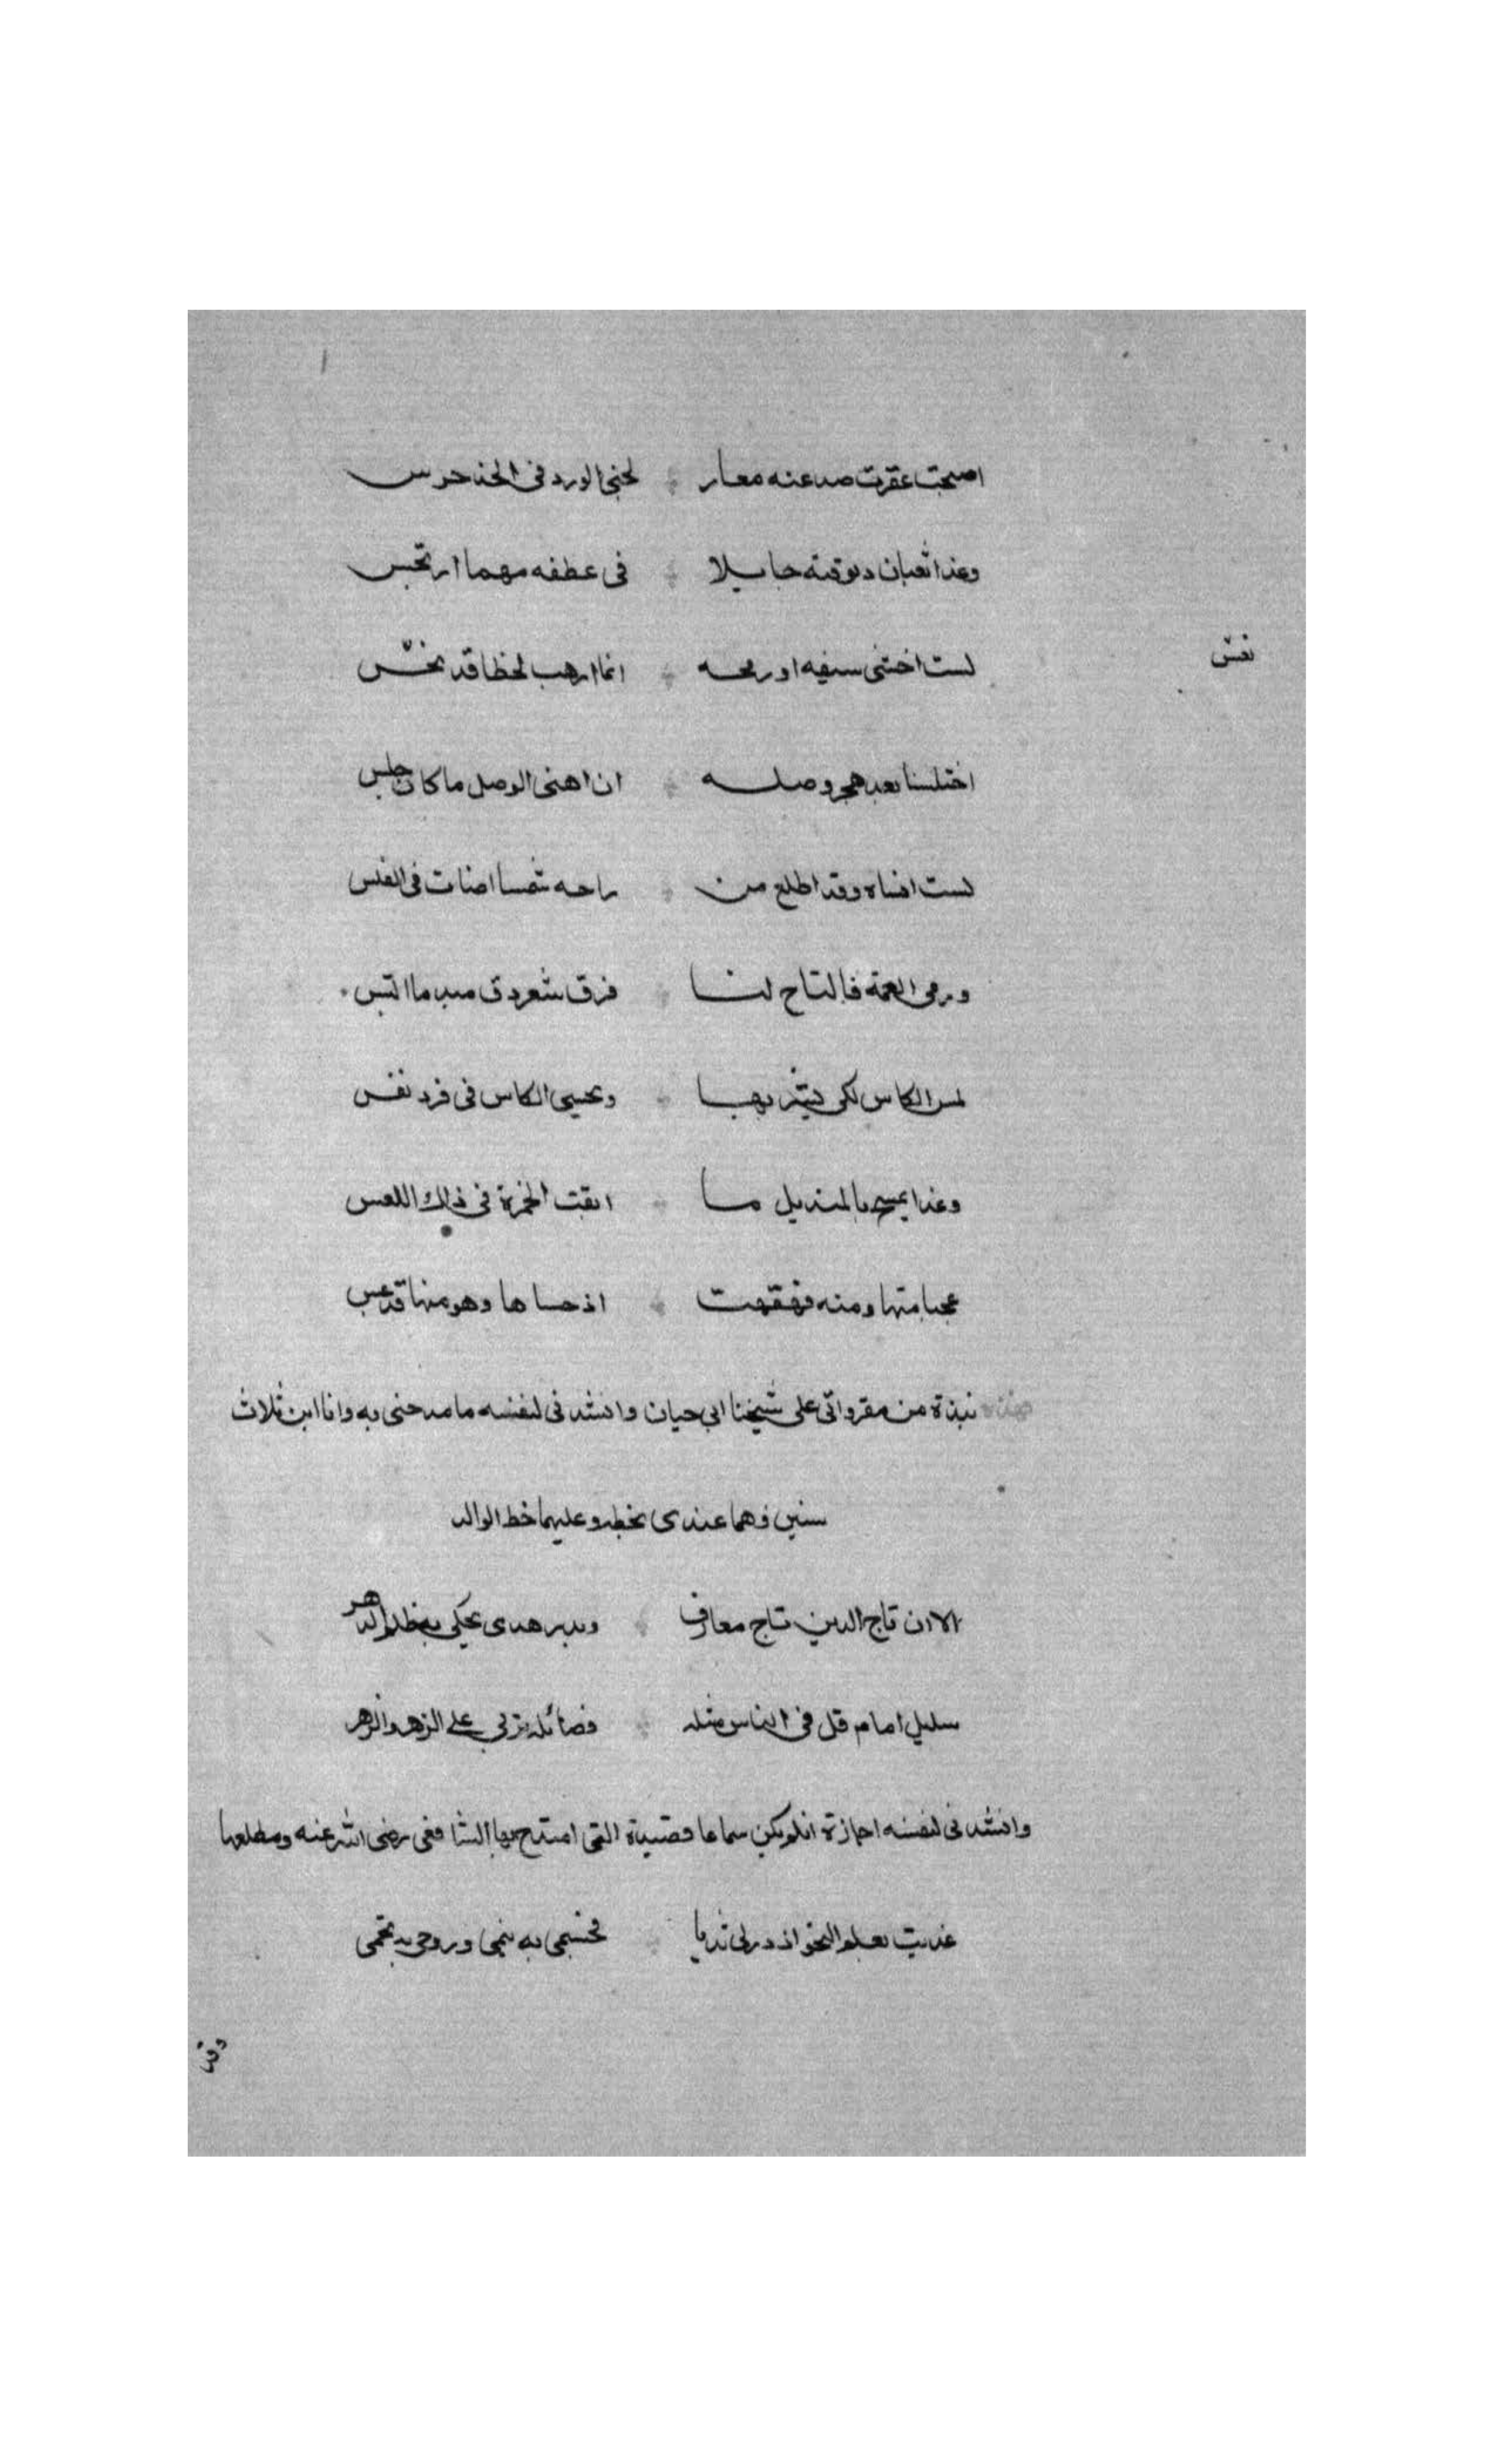 اصبحت عقرب صدغيه معا لجني الورد في الخد حرس
وغدا ثعبان دبوقته جايلا في عطفه مهما ارتجس
لست اخشى سيفه او رمحه انما ارهب لحظا قد نخس
نعس
اختلسنا بعد هجر وصله ان اهنى الوصل ما كان خلس
لست انساه وقد اطلع من راحه شمسا اضات في الغلس
ورمى العمة فالتاح لنا فرق شعر دق مبد ما التبس
لمس الكاس لكي يشربها ويحيى الكاس في فرد نفس
وغدا يمسح بالمنديل ما ابقت الخمرة في ذلك اللعس
عجبا منها ومنه قهقهت اذ حساها وهو منها قد عبس
هذه نبذة من مقرواتي على شيخنا ابي حيان وانشدني لنفسه ما مدحني به وانا ابن ثلاث
سنين وهما عندي بخطه وعليهما خط الوالد
الا ان تاج الدين تاج معارف وبدر هدى يحكي به ظلم الدهر
سليل امام قل في الناس مثله فضائله تربي على الزهر والزهر
وانشدني لنفسه اجازة ان لم يكن سماعا قصيدة التي امتدح بها الشافعي رضي الله عنه ومطلعها
غذيت بعلم النحو اذ در لي ثديا فجسمي به ينمى وروحي به تحمى